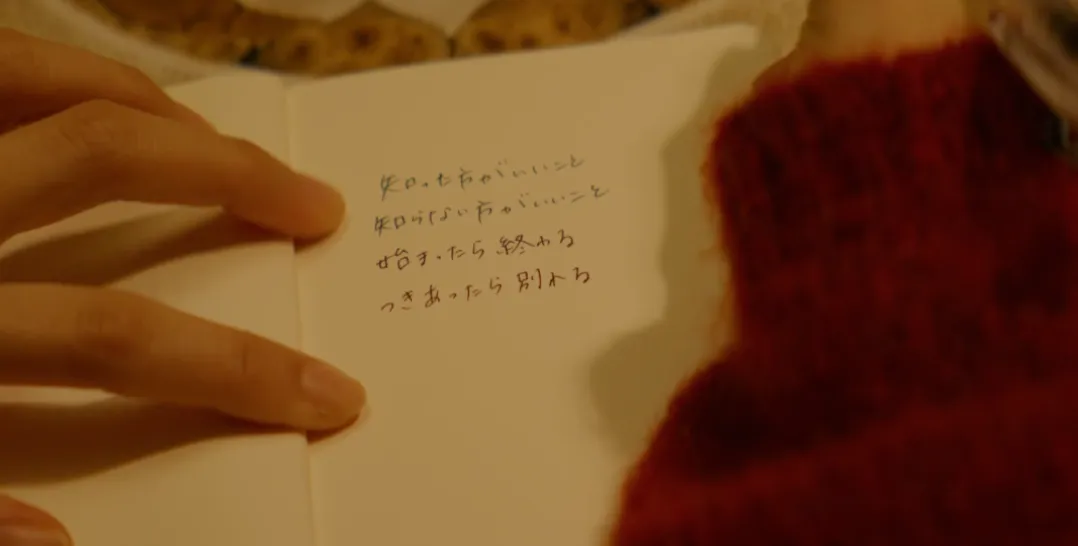 知った方がいいこと
知らない方がいいこと
始まったら終わる
つきあったら別れる